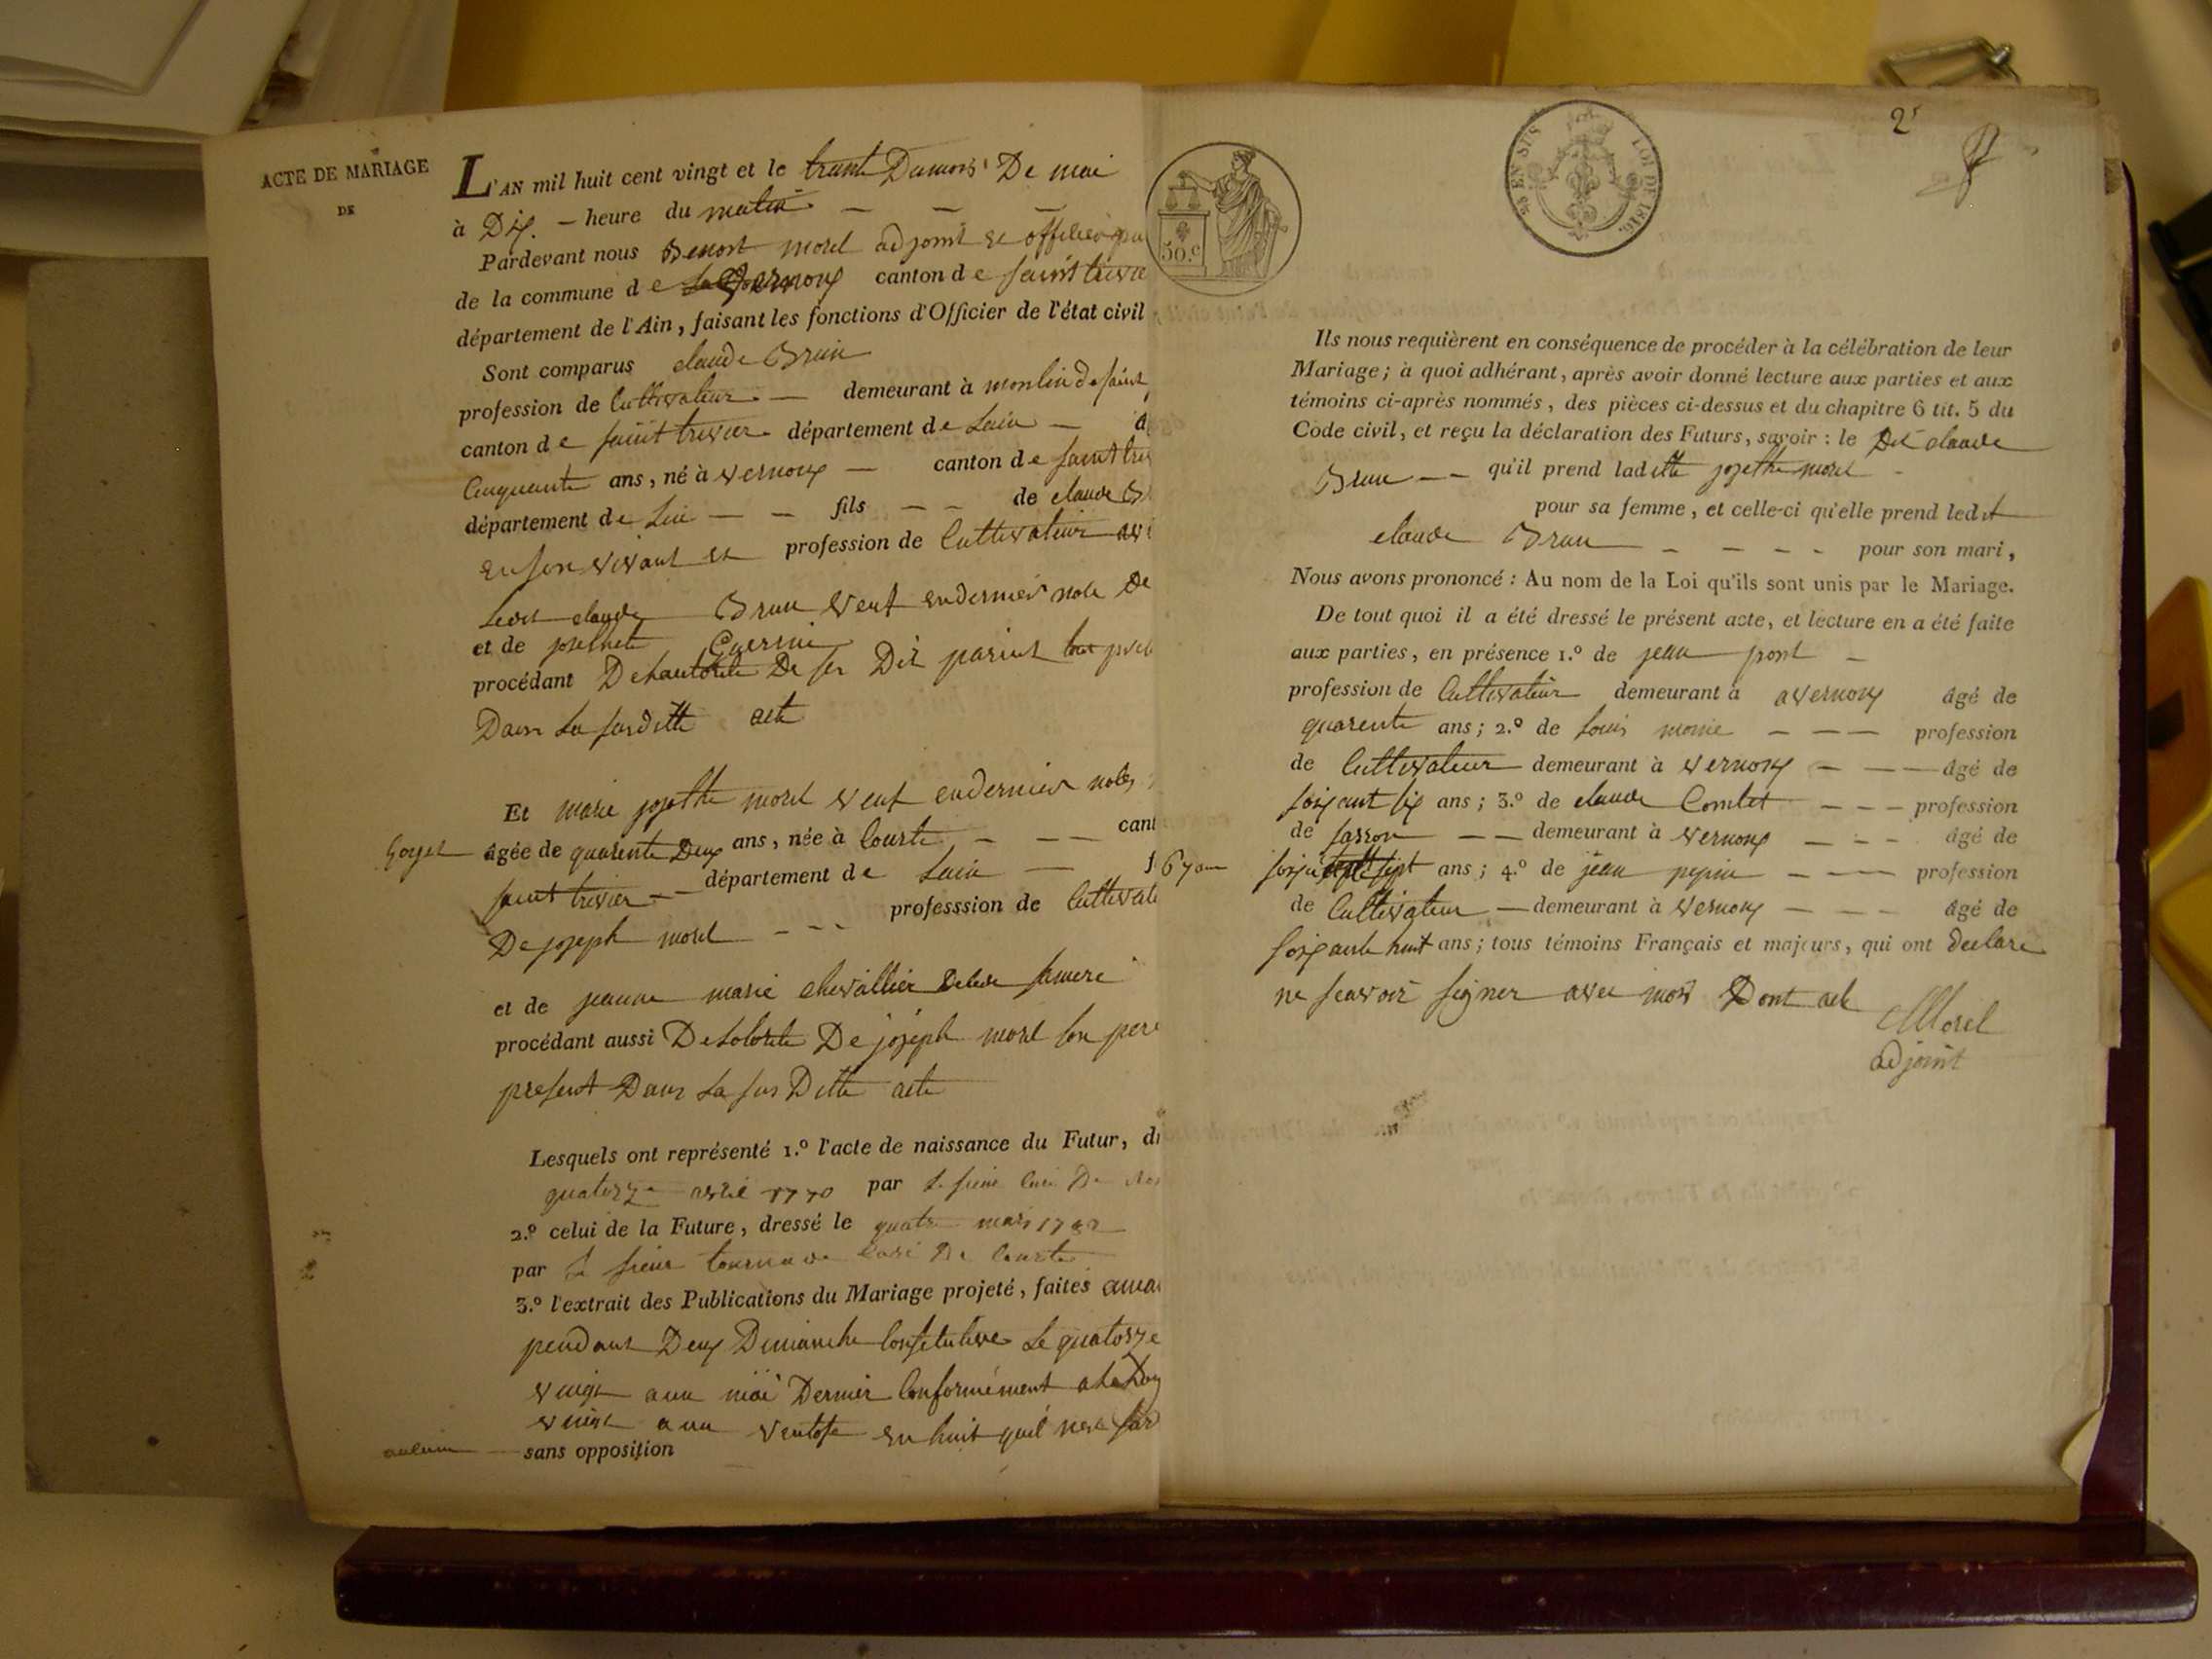 ACTE DE MARIAGE
DE
L'AN mil huit cent vingt et le trante Dumois De mai
à Dix. - heure du matin
Pardevant nous Benoit morel adjoint et officier
de la commune de vernoux canton de saint trivie
département de l'Ain, faisant les fonctions d'Officier de l'état civil
Sont comparus claude Brun
profession de Cultivateur demeurant à moulin de saint
canton de saint trivier département de Lain
Cinquante ans, né à vernoux canton de saint tri
département de Lain fils de claude B
en son vivant et profession de Cultivateur
Ledit claude Brun veuf en dernier noce De
et de Guerin
procédant De Lautorité De ses Dit parint
Dans La susditte acte
Et marie josephte morel veuf en dernier noces
Gorget âgée de quarente Deux ans, née à Courte cant
saint trivier département de Lain
De joseph morel professsion de Cultivate
et de jeanne marie chevallier samere
procédant aussi De Lotorité De joseph morel son pere
present Dans La sus Ditte acte
Lesquels ont représenté 1.º l'acte de naissance du Futur, d
quatorze avril 1770 par Le sieur Curé De
2.º celui de la Future, dressé le quatre mars
par Le sieur Curé De Courte
3.º l'extrait des Publications du Mariage projeté, faites
pendant Deux Dimanche Consetutive Le quatorze
vingt aun mai Dernier Conformément a La Loy
vingt aun ventose en huit quil
sans opposition
50.c
EN SUS LOI DE 1816.
2
Ils nous requièrent en conséquence de procéder à la célébration de leur
Mariage; à quoi adhérant, après avoir donné lecture aux parties et aux
témoins ci-après nommés, des pièces ci-dessus et du chapitre 6 tit. 5 du
Code civil, et reçu la déclaration des Futurs, savoir : le Dit claude
Brun qu'il prend laditte josephte morel
pour sa femme, et celle-ci qu'elle prend ledit
claude Brun pour son mari,
Nous avons prononcé : Au nom de la Loi qu'ils sont unis par le Mariage.
De tout quoi il a été dressé le présent acte, et lecture en a été faite
aux parties, en présence 1.º de jean pont
profession de Cultivateur demeurant à avernoux âgé de
quarente ans; 2.º de Louis profession
de Cultivateur demeurant à vernoux âgé de
soixant six ans; 3.º de claude Combet profession
de demeurant à vernoux âgé de
67 ans sept ans; 4.º de jean pepin profession
de Cultivateur demeurant à vernoux âgé de
soixante huit ans; tous témoins Français et majeurs, qui ont declare
ne scavoir signer avec moi Dont acte
Morel
adjoint